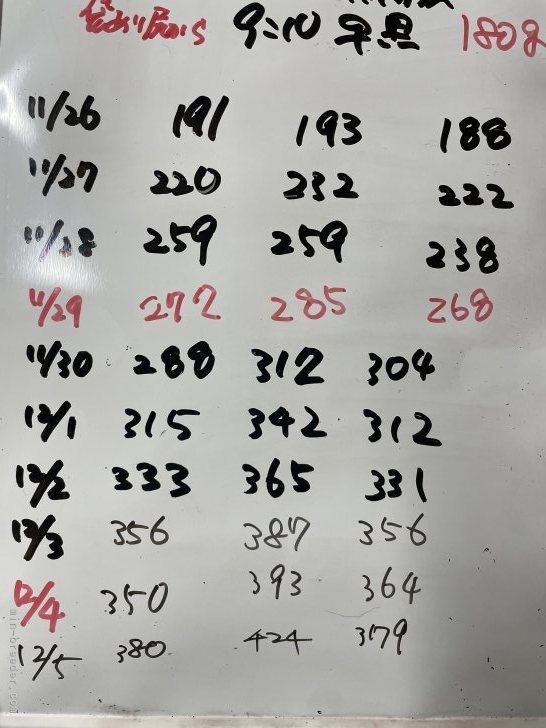 9:10 早黒 180g
11/26 191 193 188
11/27 220 232 222
11/28 259 259 238
11/29 272 285 268
11/30 288 312 304
12/1 315 342 312
12/2 333 365 331
12/3 356 387 356
12/4 350 393 364
12/5 380 424 379
min-breeder.com